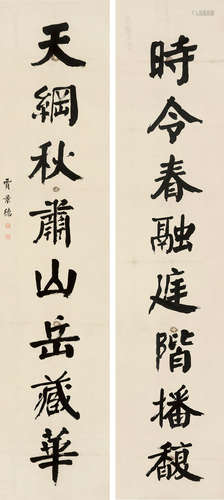 時令春融庭階播馥
天綱秋肅山岳藏華
賈景德